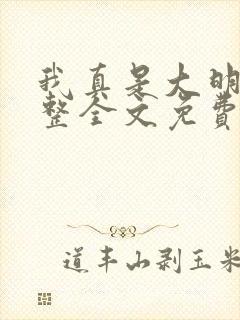 我真是大明
整全文免费
道丰山剥玉米